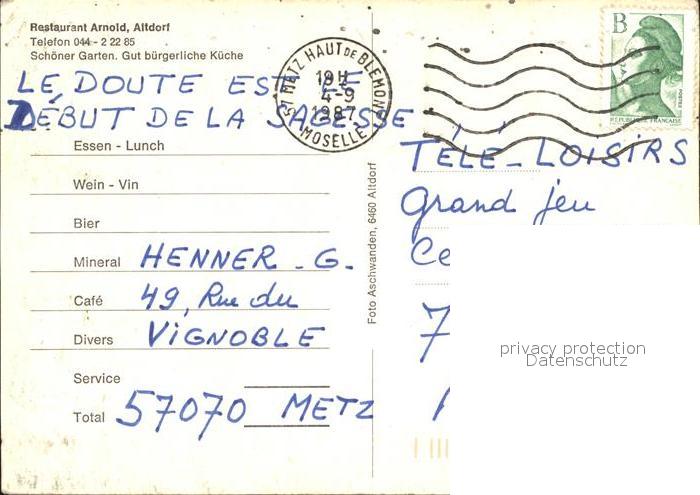 Restaurant Arnold, Altdorf
Telefon 044 - 2 22 85
Schöner Garten. Gut bürgerliche Küche
LE DOUTE EST LE
DÉBUT DE LA SAGESSE
Essen - Lunch
Wein - Vin
Bier
Mineral HENNER - G.
Café 49, Rue du
Divers VIGNOBLE
Service
Total 57070 METZ
Foto Aschwanden, 6460 Altdorf
57 METZ HAUT DE BLEMONT
18H
4-9
1987
MOSELLE
B
POSTES
REPUBLIQUE FRANÇAISE
TÉLÉ-LOISIRS
Grand jeu
Ce
7
privacy protection
Datenschutz